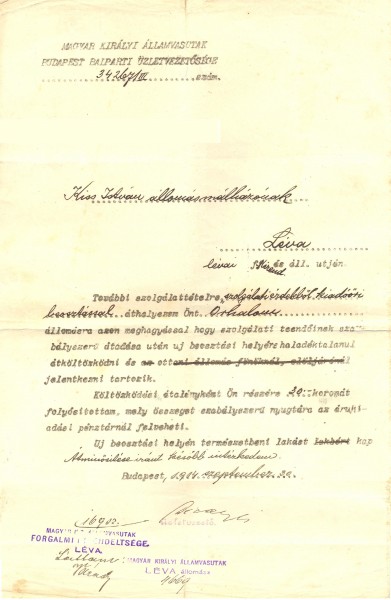 MAGYAR KIRÁLYI ÁLLAMVASUTAK
BUDAPEST BALPARTI ÜZLETVEZETŐSÉGE
34267/III szám.
Kiss István állomásmálházónak
Léva
lévai és áll. utján.
További szolgálattételre, szolgálati érdekből, kiadóőri
beosztással áthelyezem Önt
állomásra azon meghagyással hogy szolgálati teendőinek sza-
bályszerű átadása után uj beosztási helyére haladéktalanul
átköltözködni és az ottani állomás főnöknél, elöljárónál
jelentkezni tartozik.
Költözködési átalányként Ön részére koronát
folyósitottam, mely összeget szabályszerű nyugtára az áruki-
adási pénztárnál felveheti.
Uj beosztási helyén természetbeni lakást lakbért kap
Átminősitése iránt később intézkedem.
Budapest, 1904. szeptember
16902
MAGYAR KIR. ÁLLAMVASUTAK
FORGALMI FŐNÖKSÉGE.
LÉVA.
MAGYAR KIRÁLYI ÁLLAMVASUTAK
LÉVA állomása